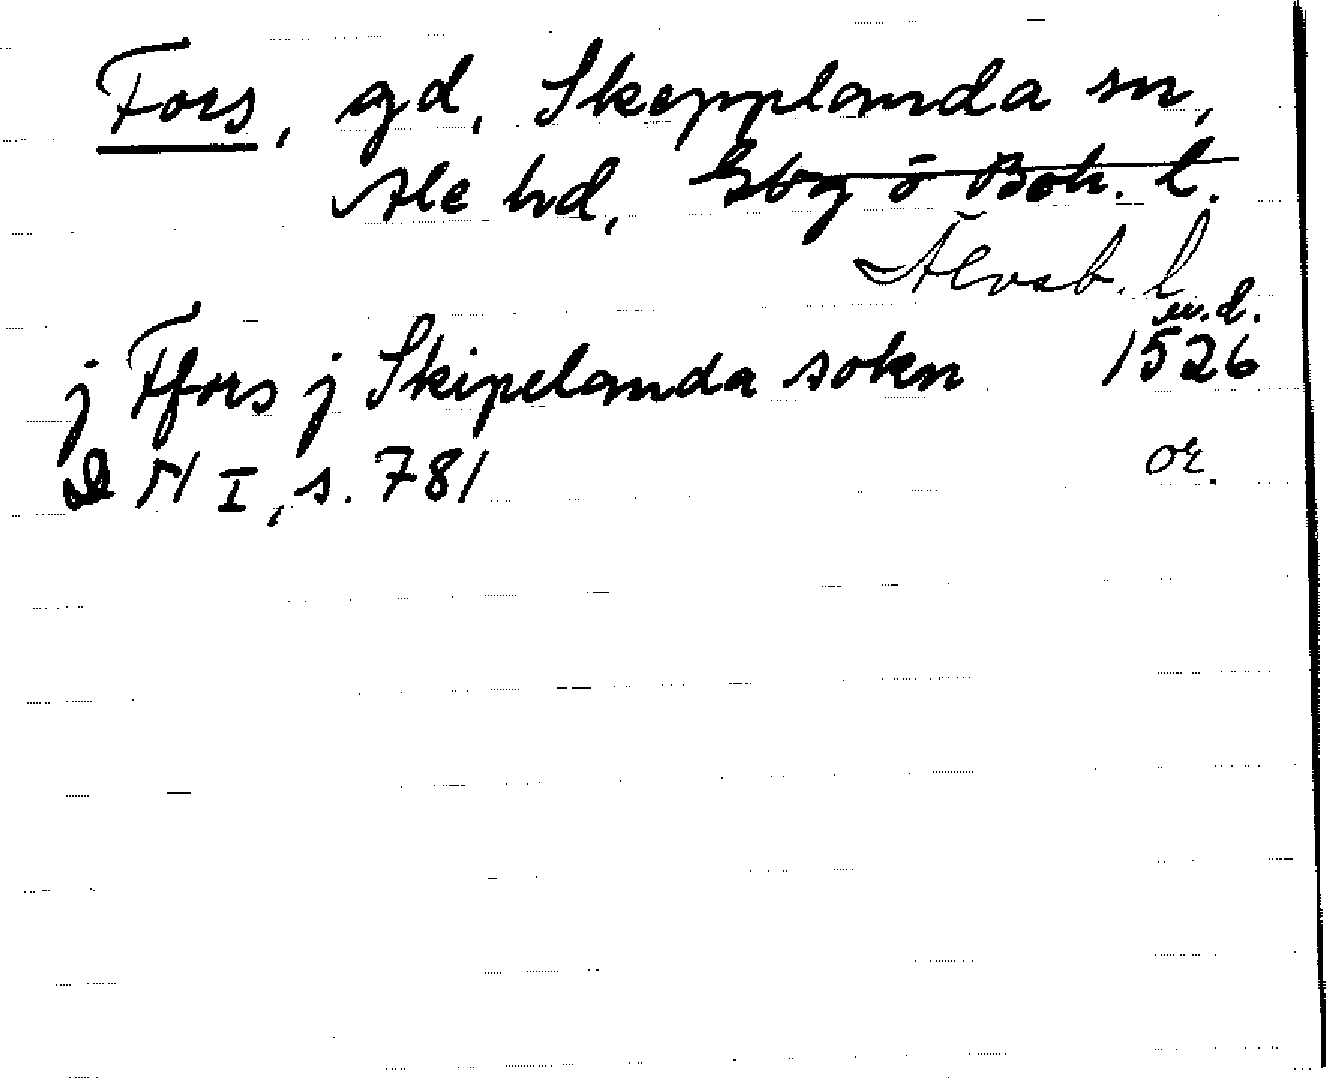 Fors, gd, Skepplanda sn,
Ale hd, Gbg o Boh. l.
Älvsb. l
u.d.
j Ffors j Skipelanda sokn 1526
I, s. 781 or.